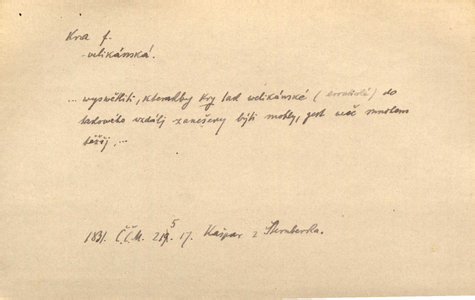 Kra f.
-velikánská.
... wyswětliti, kterakby kry tak welikánské ( ) do
takowého wzdálj zanešeny býti mohly, jest wěc mnohem
těžšj,...
1831. Č.Č.M. 5. 17. Kašpar z Sternberka.